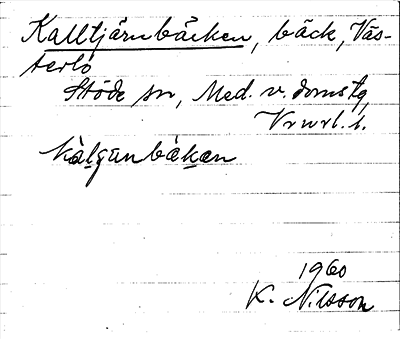 Kalltjärnbäcken, bäck, Väs-
terlo
Stöde sn, Med. v. domsåg,
Vrwrl. l.
kàlgɛnbä́kæn
1960
K. Nilsson